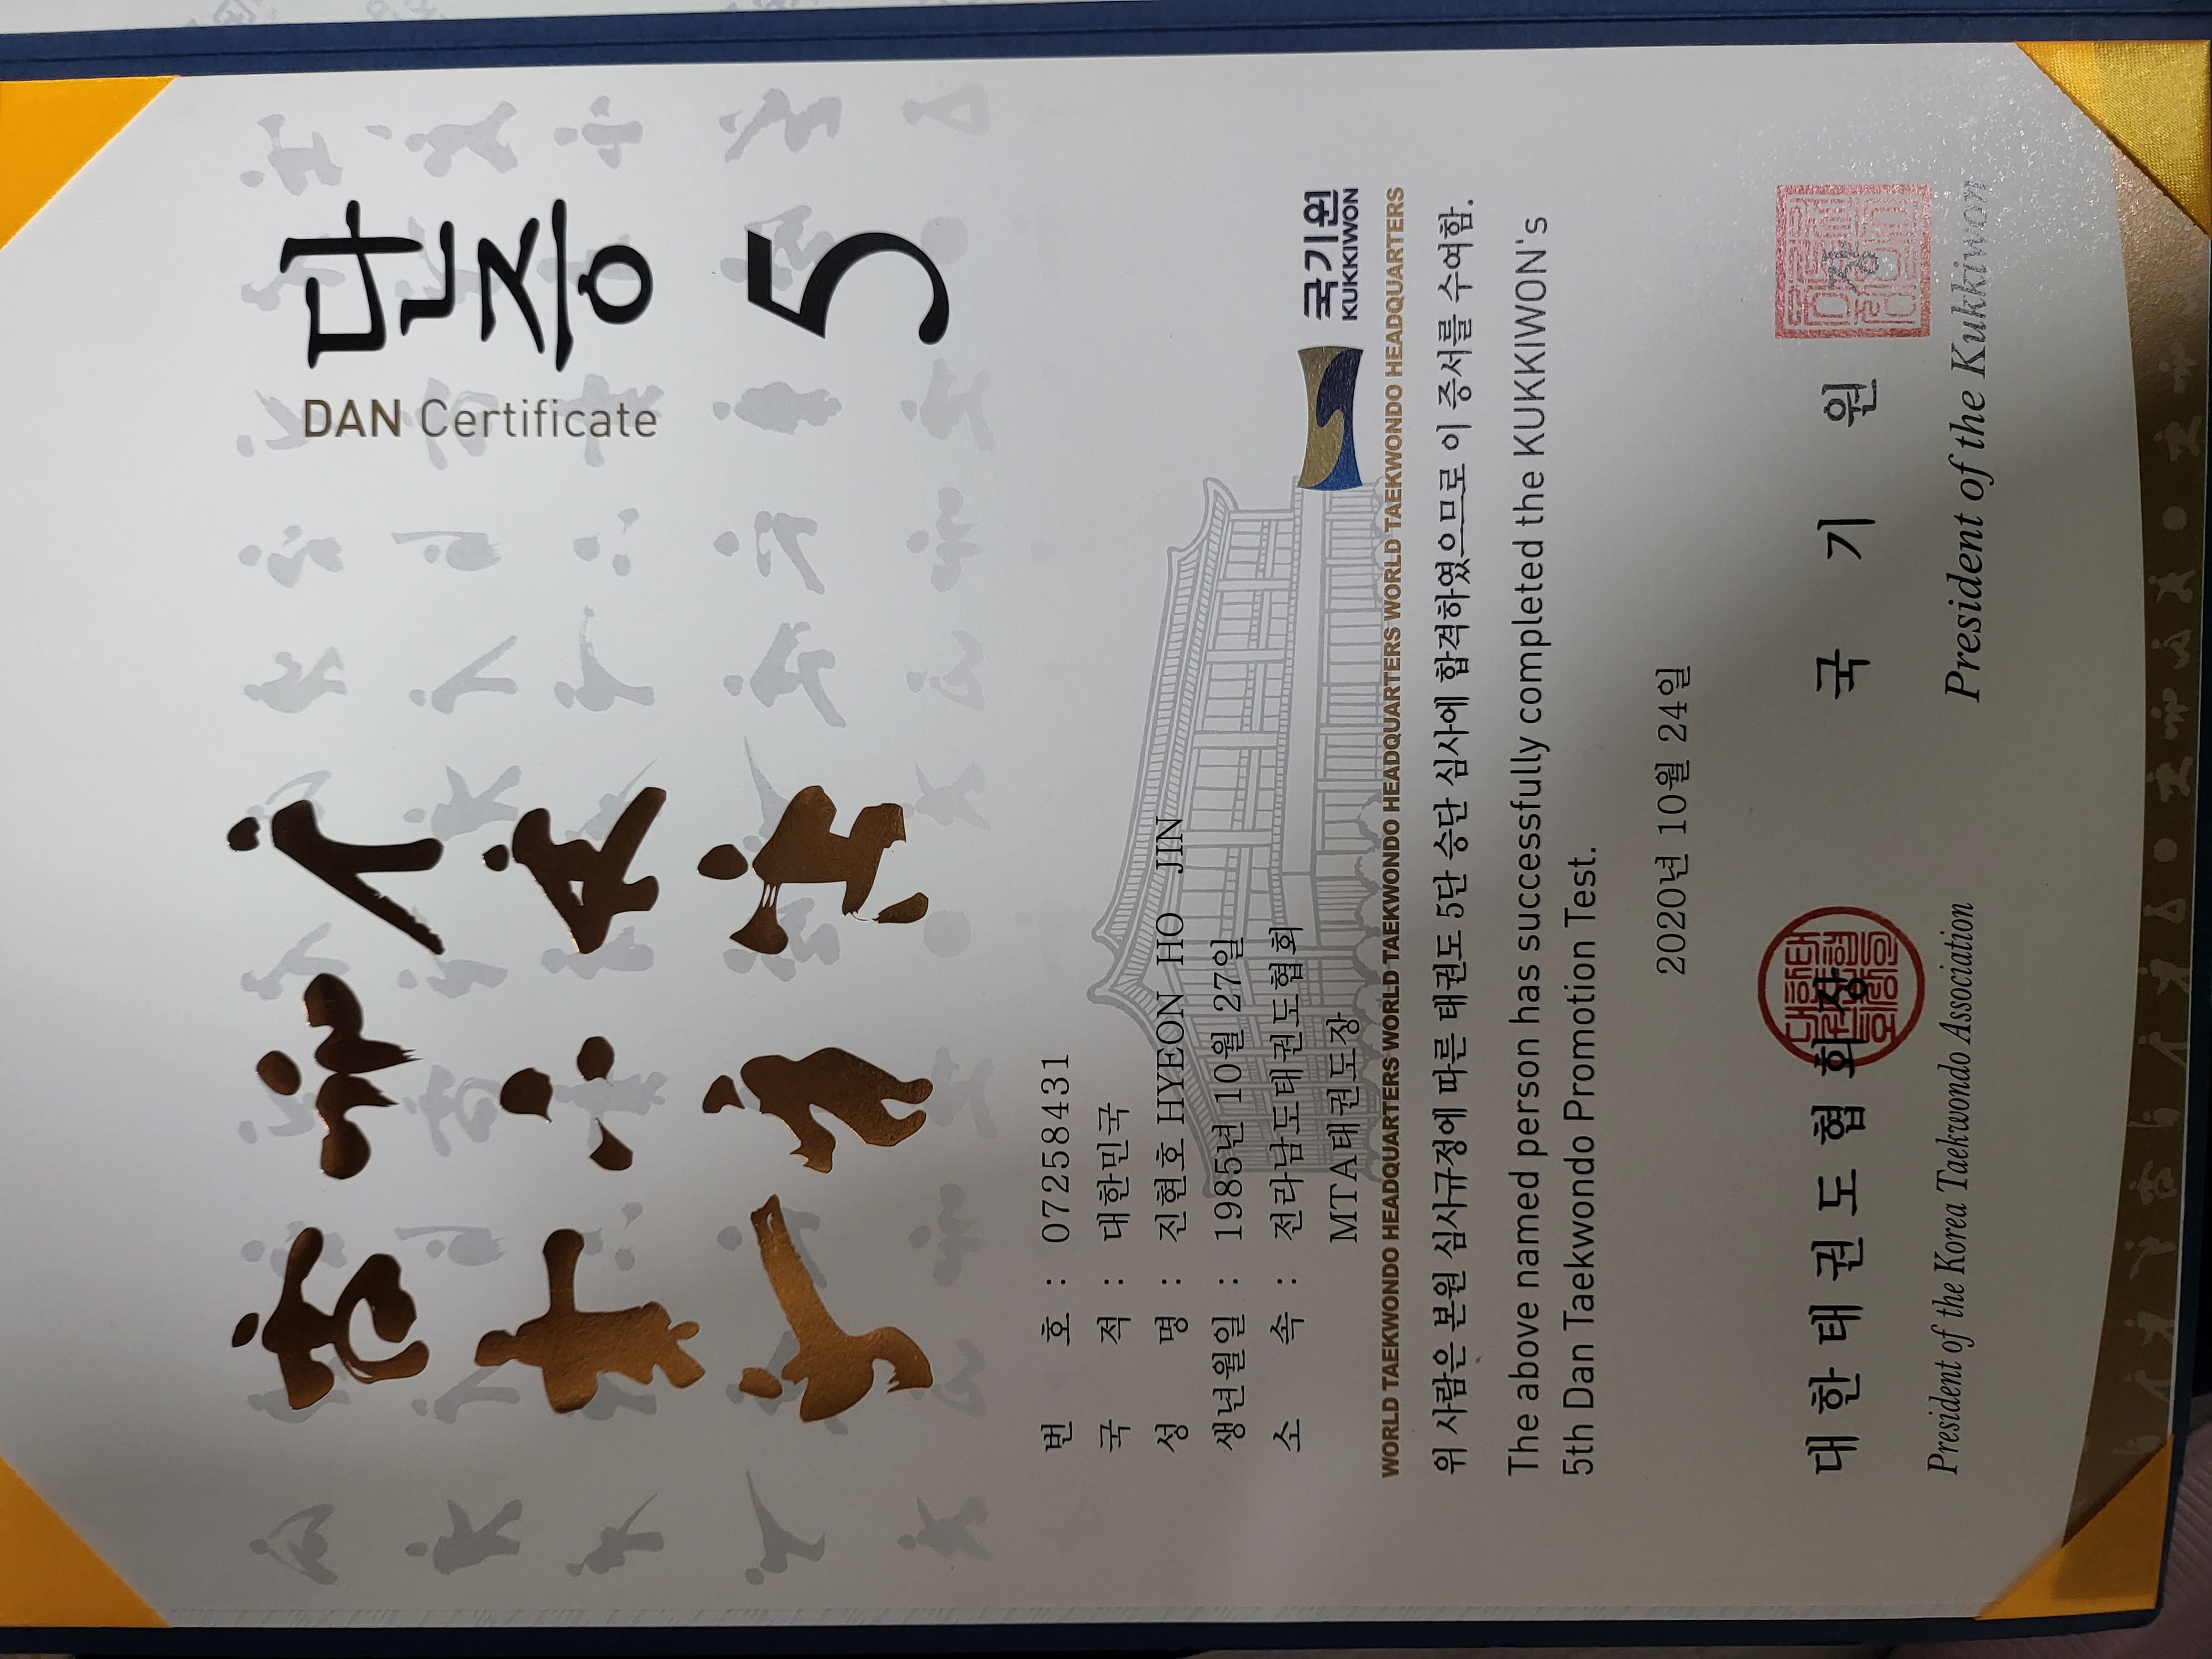 단증
DAN Certificate
5
번 호 : 07258431
국 적 : 대한민국
성 명 : 진현호 HYEON HO JIN
생년월일 : 1985년 10월 27일
소 속 : 전라남도태권도협회
MTA태권도장
국기원
KUKKIWON
WORLD TAEKWONDO HEADQUARTERS WORLD TAEKWONDO HEADQUARTERS WORLD TAEKWONDO HEADQUARTERS WORLD TAEKWONDO HEADQUARTERS
위 사람은 본원 심사규정에 따른 태권도 5단 승단 심사에 합격하였으므로 이 증서를 수여함.
The above named person has successfully completed the KUKKIWON's
5th Dan Taekwondo Promotion Test.
2020년 10월 24일
대한태권도협회장
President of the Korea Taekwondo Association
국 기 원 장
President of the Kukkiwon